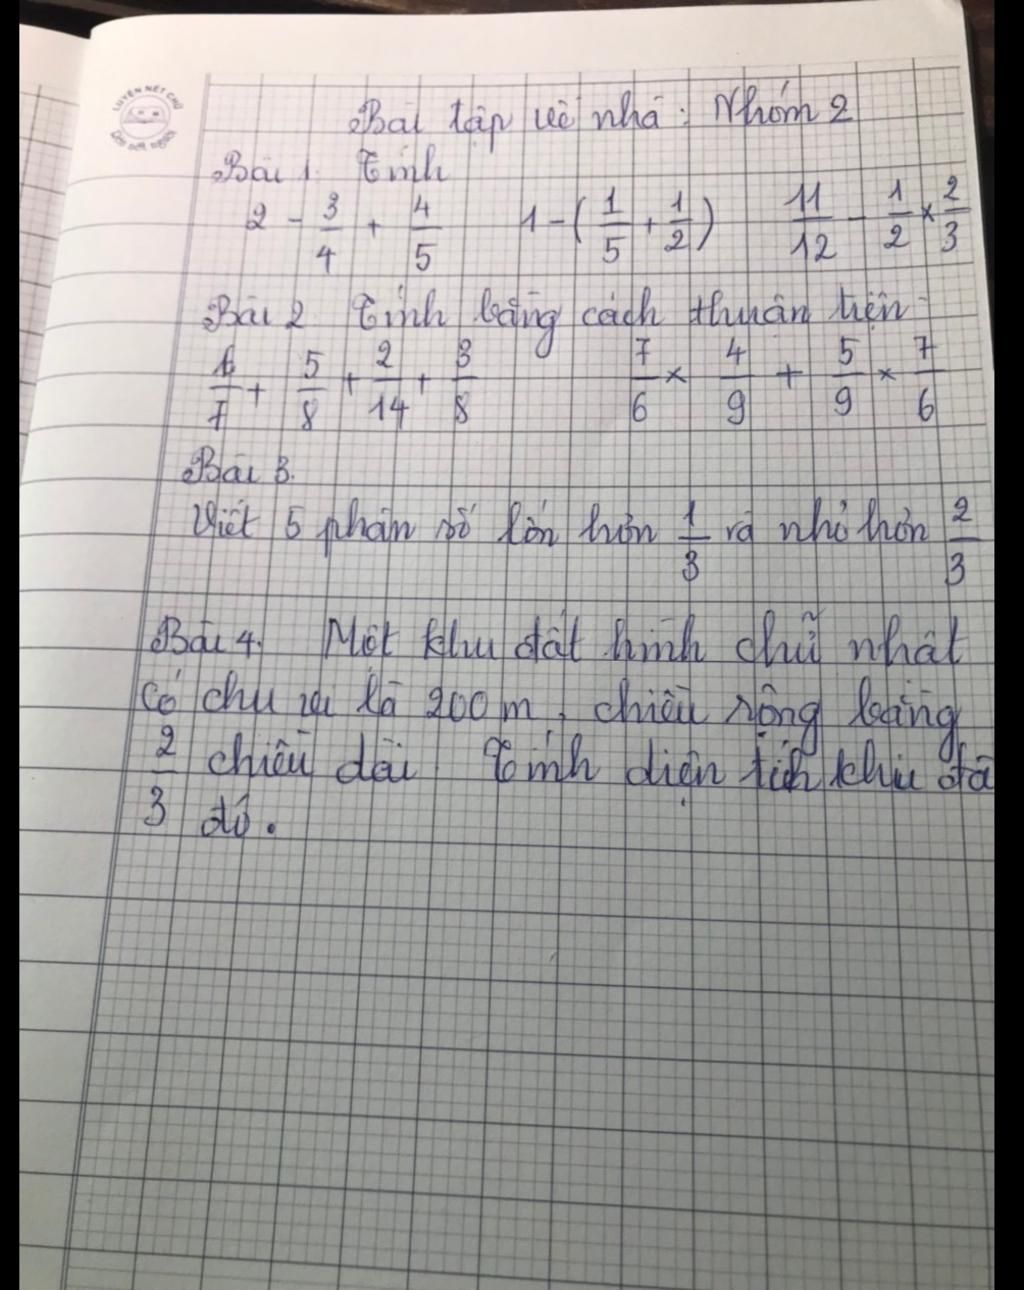 LUYỆN NÉT CHỮ
Bài tập về nhà: Nhóm 2
Bài 1. Tính
2 - 3/4 + 4/5    1 - (1/5 + 1/2)    11/12 - 1/2 × 2/3
Bài 2 Tính bằng cách thuận tiện
6/7 + 5/8 + 2/14 + 3/8    7/6 × 4/9 + 5/9 × 7/6
Bài 3.
Viết 5 phân số lớn hơn 1/3 và nhỏ hơn 2/3
Bài 4. Một khu đất hình chữ nhật
có chu vi là 200m, chiều rộng bằng
2/3 chiều dài Tính diện tích khu đấ
đó.